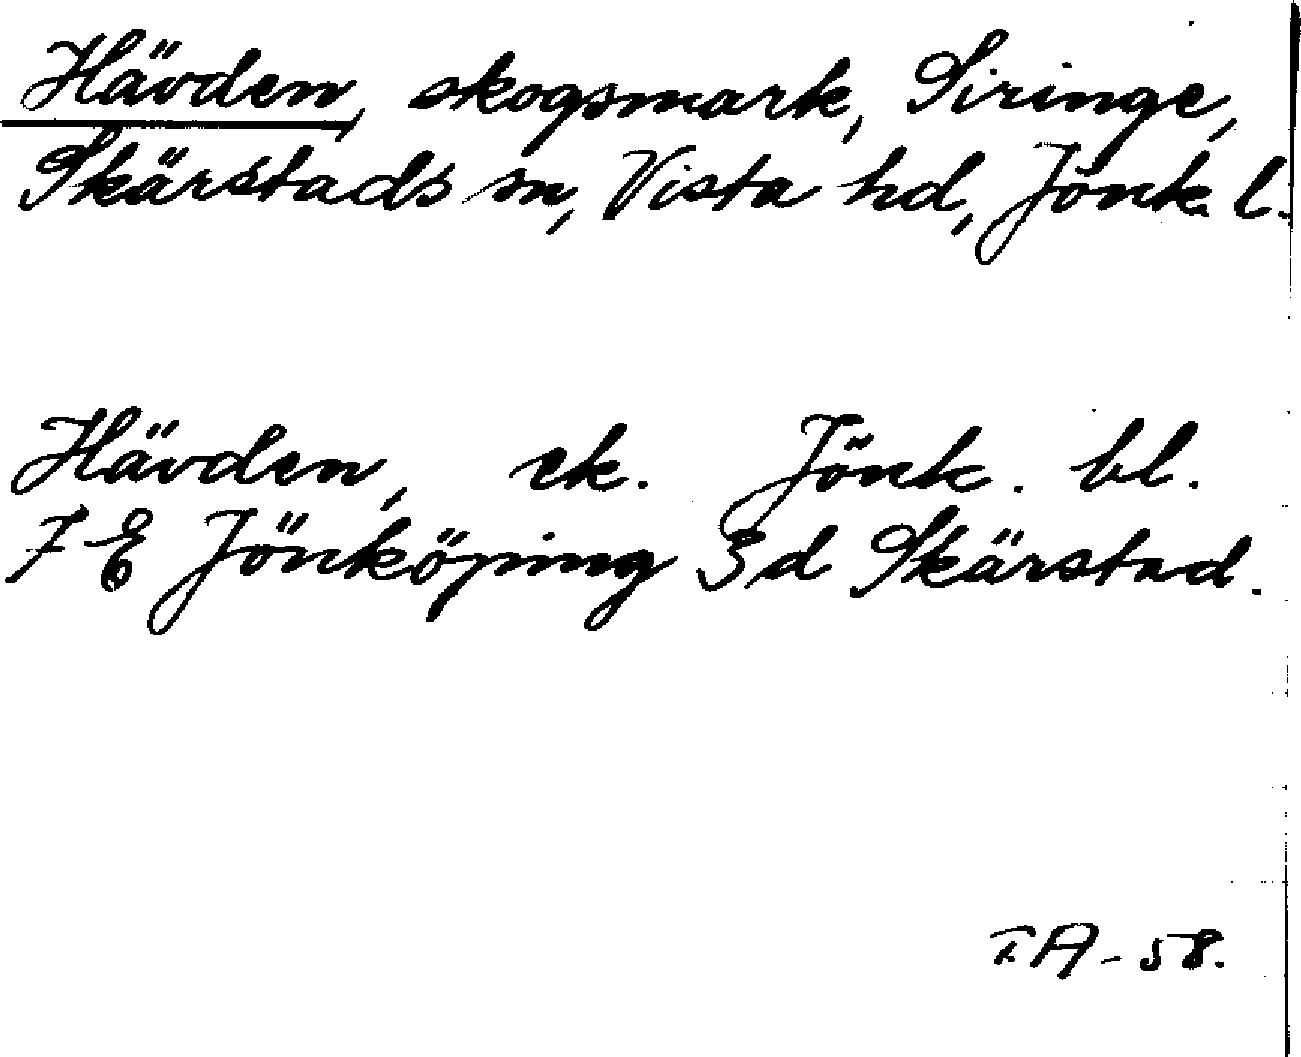 Hävden, skogsmark, Siringe,
Skärstads sn, Vista hd, Jönk. l.
Hävden, ek. Jönk. bl.
7 E Jönköping 3d Skärstad.
I.A-58.